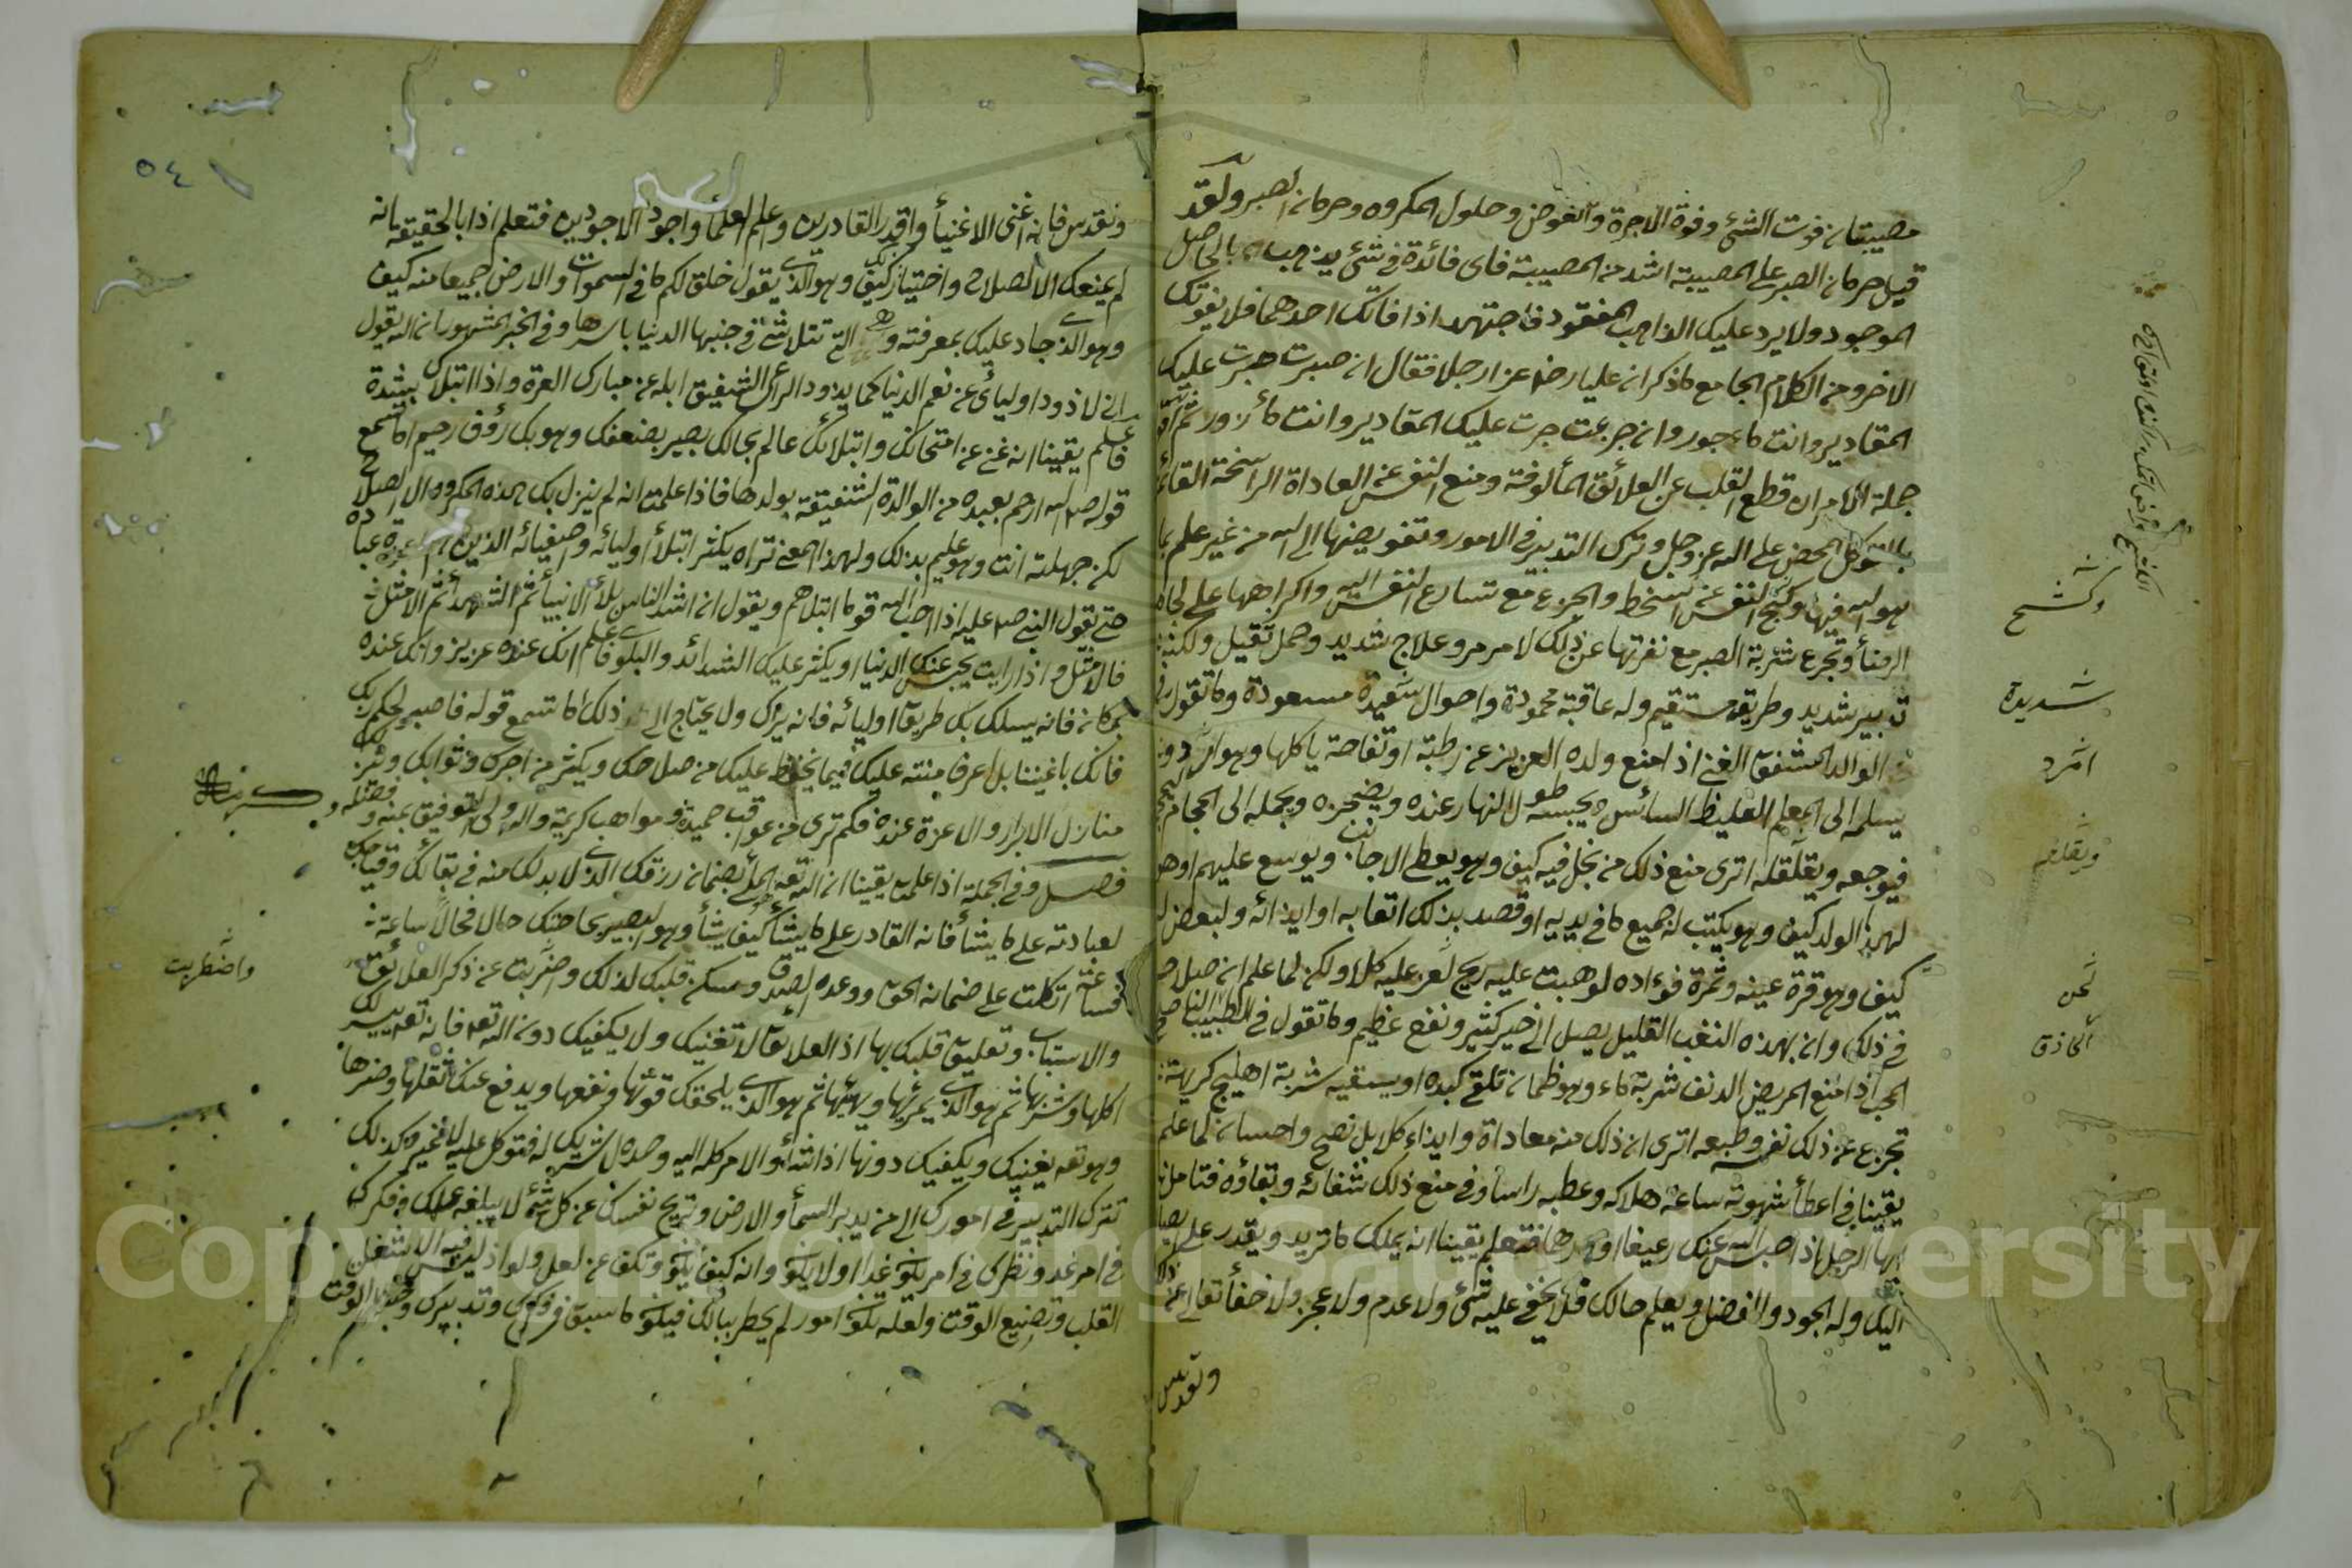 مصيبتان فوت الشئ وفوة الاجرة والغوض وحلول المكروه وحرمان الصبر ولقد
قيل حرمان الصبر على المصيبة اشد من المصيبة فاى فائدة فى شئ يذهب بالحاصل
الموجود ولا يرد عليك الذاهب المفقود فاجتهد اذا فاتك احدهما فلا يفوتك
الاخر ومن الكلام الجامع ما ذكر ان عليا رضى عزا رجلا فقال ان صبرت جرت عليك
المقادير وانت ماءجور وان جزعت جرت عليك المقادير وانت مأزور ثم
جملة الامر ان قطع القلب عن العلائق المألوفة ومنع النفس عن العاداة الراسخة القائم
بالتوكل المحض على الله عز وجل وترك التدبير فى الامور وتفويضها الى الله من غير علم بما
هو له فيها وكبح النفس عن السخط والجزع مع تسارع النفس اليه واكراهها على لجام
الرضأ وتجرع شربة الصبر مع نفرتها عن ذلك لامر مر وعلاج شديد وحمل ثقيل ولكنه
تدبير شديد وطريق مستقيم وله عاقبة محمودة واحوال سعيدة مسعودة وما تقول فى
الوالد المشفق الغنى اذا منع ولده العزيز عن رطبة او تفاحة ياكلها وهو ارمد و
يسلمه الى المعلم الغليظ السائس ويحبسه طول النهار عنده ويضجره ويحمله الى الحجام
فيوجعه ويقلقله اترى منع ذلك من بخل فيه كيف وهو يعطى الاجانب ويوسع عليهم او هو
لهذا الولد كيف وهو يكتب له جميع ما فى يديه او قصد بذلك اتعابه او ايذائه ولبغض له
كيف وهو قرة عينه وثمرة فوءاده لو هبت عليه ريح لعز عليه كلا ولكن لما علم ان صلاحه
فى ذلك وان بهذه التعب القليل يصل الى خير كثير ونفع عظيم وما تقول فى الطبيب الناصح
المحب اذا منع المريض الدنف شربة ماء وهو ظمان تلقى كبده او يسقيه شربة اهليلج كريهة
تجزع عن ذلك نفسه وطبعه اترى ان ذلك منه معاداة وايذاء كلا بل نصح واحسان لما علم
يقينا فى اعطأ شهوته ساعة هلاكه وعطبه راسا وفى منع ذلك شفائه وبقاؤه فتامل
ايها الرجل اذا حبس الله عنك رغيفا او درهما فتعلم يقينا انه يملك ما تريد ويقدر على
اليك وله الجود والفضل ويعلم حالك فلا يخفى عليه شئ ولا عدم ولا عجز ولا خفأ تعالى عن
وتقدس
وكشح
شديدة
امرد
ويقلقه
لحن
الحاذق
٥٤
وتقدس فانه اغنى الاغنيأ واقدر القادرين وعلم العلمأ واجود الاجودين فتعلم اذا بالحقيقة انه
لم يمنعك الا لصلاح واختيار كيف وهو الذى يقول خلق لكم ما فى السموات والارض جميعا منه كيف
وهو الذى جاد عليك بمعرفته وهى التى تتلاشى فى جنبها الدنيا باسرها وفى الخبر المشهور ان الله يقول
انى لاذود اوليائ عن نعم الدنيا كما يذود الراعى الشفيق ابله عن مبارك العرة واذا ابتلاك بشدة
فاعلم يقينا انه غنى عن امتحانك وابتلائك عالم بحالك بصير بضعفك وهو بك رؤف رحيم اما تسمع
قوله صلم الله ارحم بعبده من الوالدة الشفيقة بولدها فاذا علمت انه لم ينزل بك هذه المكروه الا لصلاح
لك جهلته انت وهو عليم بذلك ولهذا المعنى تراه يكثر ابتلأ اوليائه واصفيائه الذين هم اعزة عباده
حتى يقول النبى صلم عليه اذا احب الله قوما ابتلاهم ويقول ان اشد الناس بلأ الانبيأ ثم الشهدأ ثم الامثل
فالامثل واذا رايت يحبس عنك الدنيا او يكثر عليك الشدائد والبلوى فاعلم انك عنده عزيز وانك عنده
بمكان فانه يسلك بك طريق اوليائه فانه يراك ولا يحتاج الى ذلك اما تسمع قوله فاصبر لحكم ربك
فانك باعيننا بل اعرف منته عليك فيما يحفظ عليك من صلاحك ويكثر من اجرك وثوابك وينزلك
منازل الابرار والاعزة عنده فكم ترى من عواقب حميدة ومواهب كريمة والله ولى التوفيق بمنه وفضله
فصل وفى الجملة اذا علمت يقينا ان الله تعالى بضمان رزقك الذى لا بد لك منه فى بقائك وقيامك
لعبادته على ما يشأ فانه القادر على ما يشأ كيف يشأ وهو البصير بحاجتك حالا فحالا ساعة
فساعة اتكلت على ضمان الحق ووعده الصدق وسكن قلبك لذلك واضربت عن ذكر العلائق
والاسباب وتعليق قلبك بها اذ العلائق لا تغنيك ولا يكفيك دون الله تعه فانه تعه ييسر لك
اكلها وشربها ثم هو الذى يمرئها ويهنئها ثم هو الذى يلحقك قوتها ونفعها ويدفع عنك ثقلها وضرها
وهو تعه يغنيك ويكفيك دونها اذا شأ والامر كله اليه وحده لا شريك له فتوكل عليه لا غير وكذلك
تترك التدبير فى امورك الى من يدبر السمأ والارض وتريح نفسك عن كل شئ لا يبلغه علمك وفكرك
فى امر غد ونظرك فى امر يكون غدا او لا يكون وانه كيف يكون وتكف عن لعل ولو اذ ليس فيه الا شغل
القلب وتضييع الوقت ولعله تكون امور لم يخطر ببالك فيكون ما سبق من فكرك وتدبيرك وتضييع الوقت
واضطربت
Copyright © King Saud University